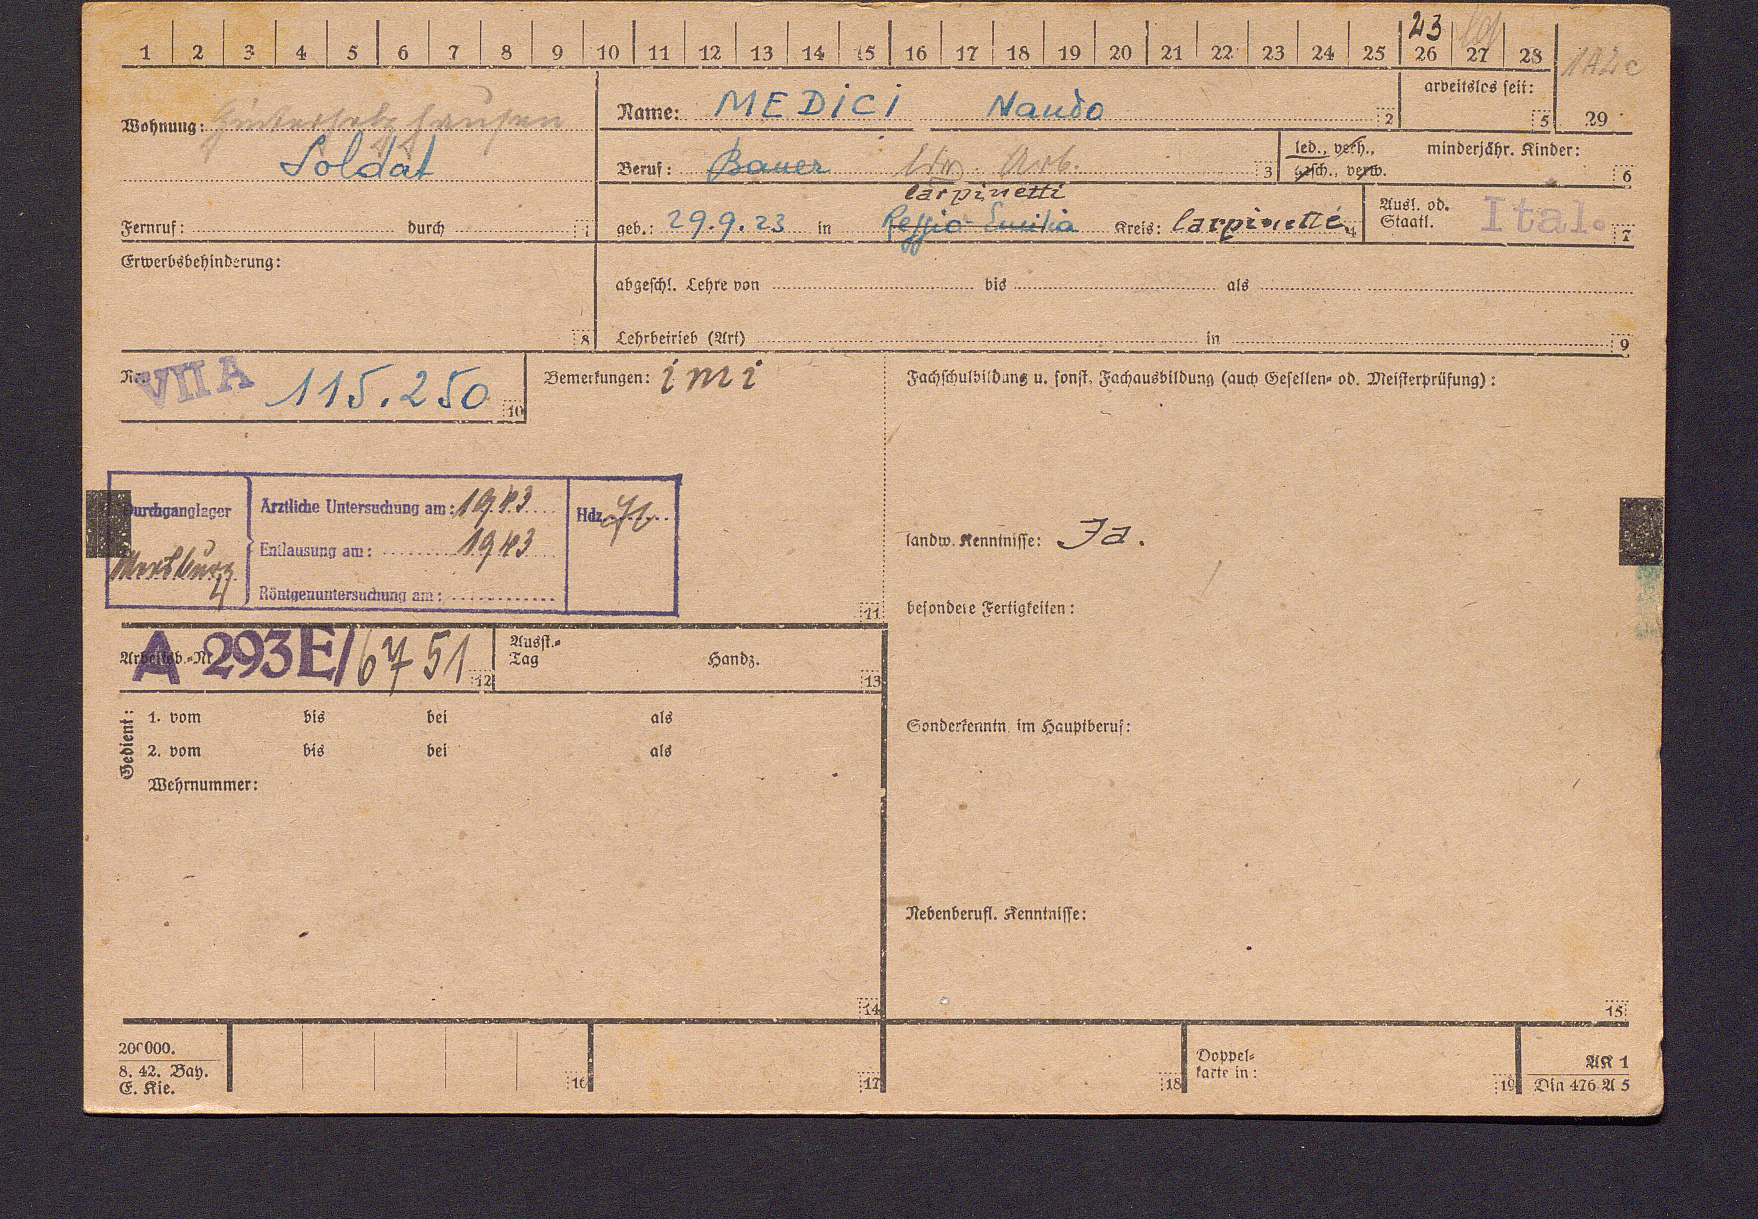 1 2 3 4 5 6 7 8 9 10 11 12 13 14 15 16 17 18 19 20 21 22 23 24 25 26 27 28
23
arbeitslos seit: 5
29
Wohnung:
Soldat
Fernruf: durch 1
Name: MEDICI Nando 2
Beruf: Bauer Ldw. Arb. 3
led., verh.,
gesch., verw.
minderjähr. Kinder: 6
Carpinetti
geb.: 29.9.23 in Reggio Emilia Kreis: Carpinetti 4
Ausl. od.
Staatl. Ital. 7
Erwerbsbehinderung: 8
abgeschl. Lehre von bis als
Lehrbetrieb (Art) in 9
VII A 115.250 10
Bemerkungen: imi
Fachschulbildung u. sonst. Fachausbildung (auch Gesellen- od. Meisterprüfung):
Durchganglager
Ärztliche Untersuchung am: 1943
Hdz.
Entlausung am: 1943
Röntgenuntersuchung am:
11
landw. Kenntnisse: Ja.
besondere Fertigkeiten:
Arbeitsb.-Nr. A 293E/6751 12
Ausst.-
Tag
Handz. 13
Gedient:
1. vom bis bei als
2. vom bis bei als
Wehrnummer:
14
Sonderkenntn. im Hauptberuf:
Nebenberufl. Kenntnisse:
15
200000.
8. 42. Bay.
E. Kie.
16 17 18
Doppel-
karte in: 19
AK 1
Din 476 A 5